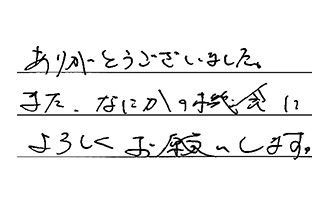 ありがとうございました。
また、なにかの機会に
よろしくお願いします。